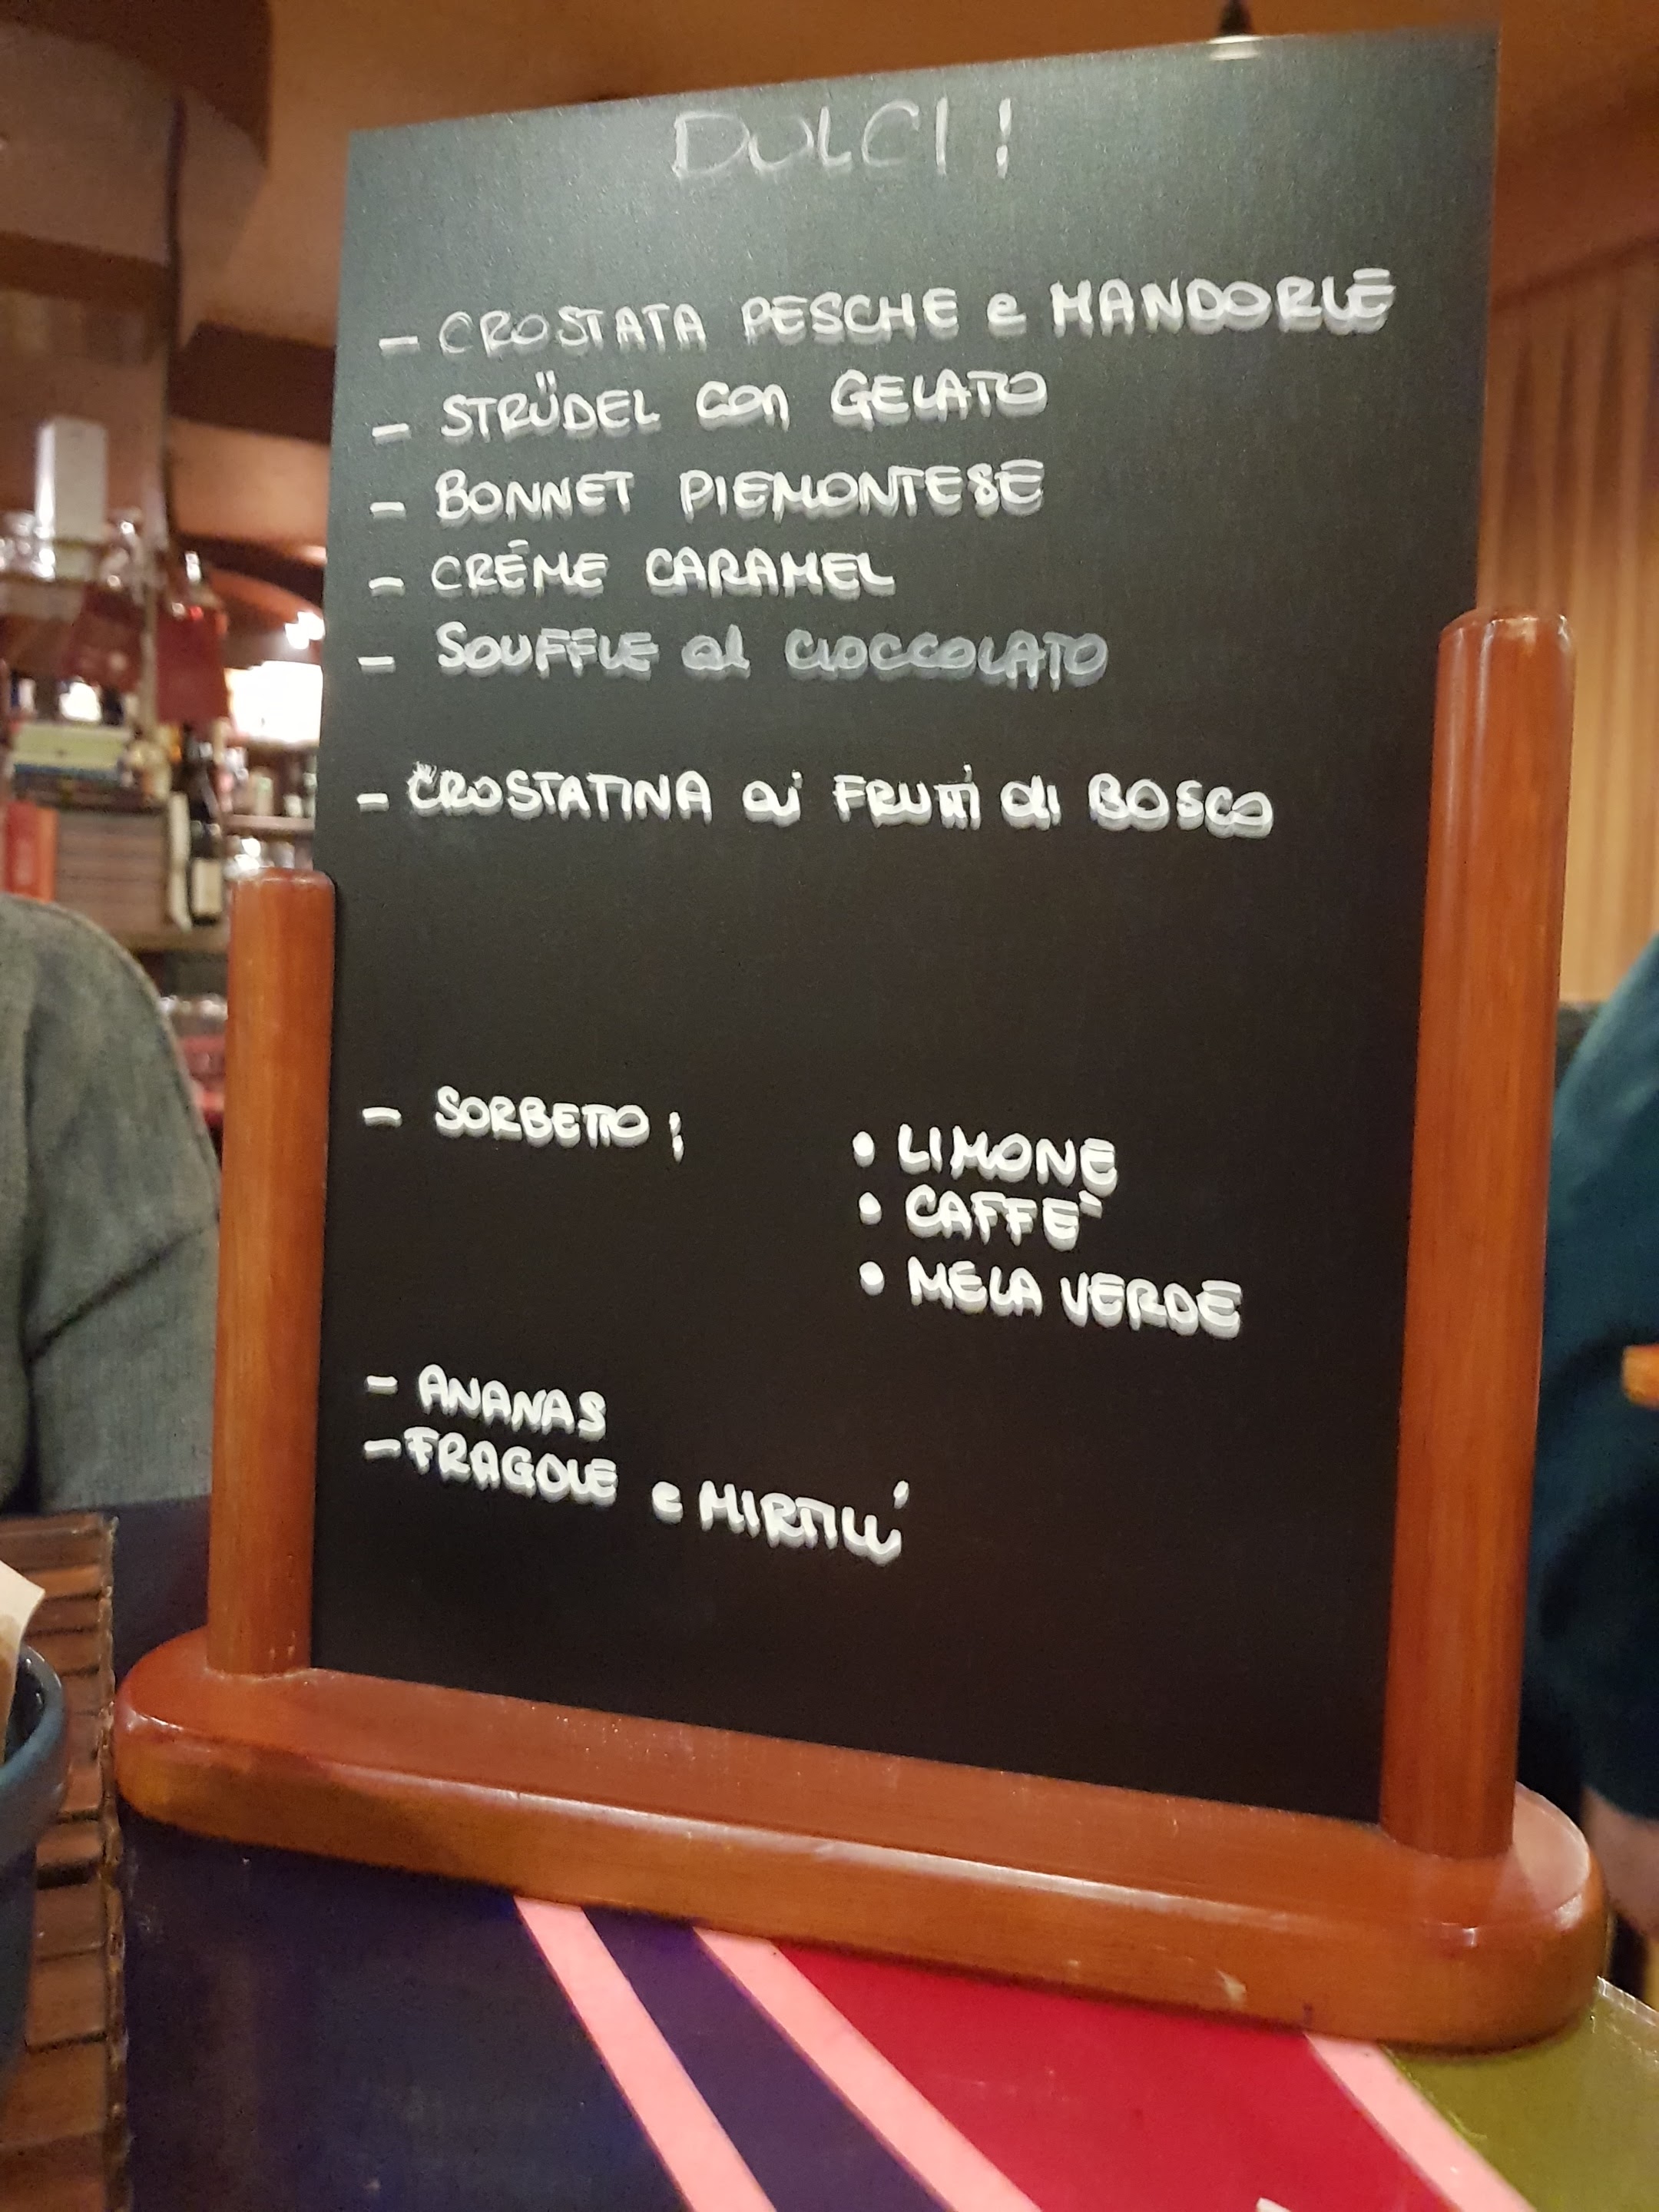 DOLCI!
- CROSTATA PESCHE e MANDORLE
- STRÜDEL con GELATO
- BONNET PIEMONTESE
- CRÉME CARAMEL
- SOUFFLE al CIOCCOLATO
- CROSTATINA ai FRUTTI di BOSCO
- SORBETTO :
• LIMONE
• CAFFE'
• MELA VERDE
- ANANAS
- FRAGOLE e MIRTILLI